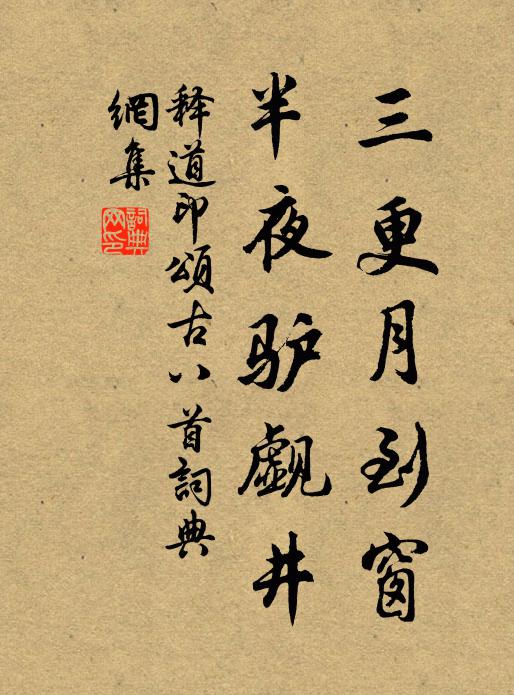 三更月到窗
半夜驴觑井
释道印頌古八首詞典
網集
詞典
网印